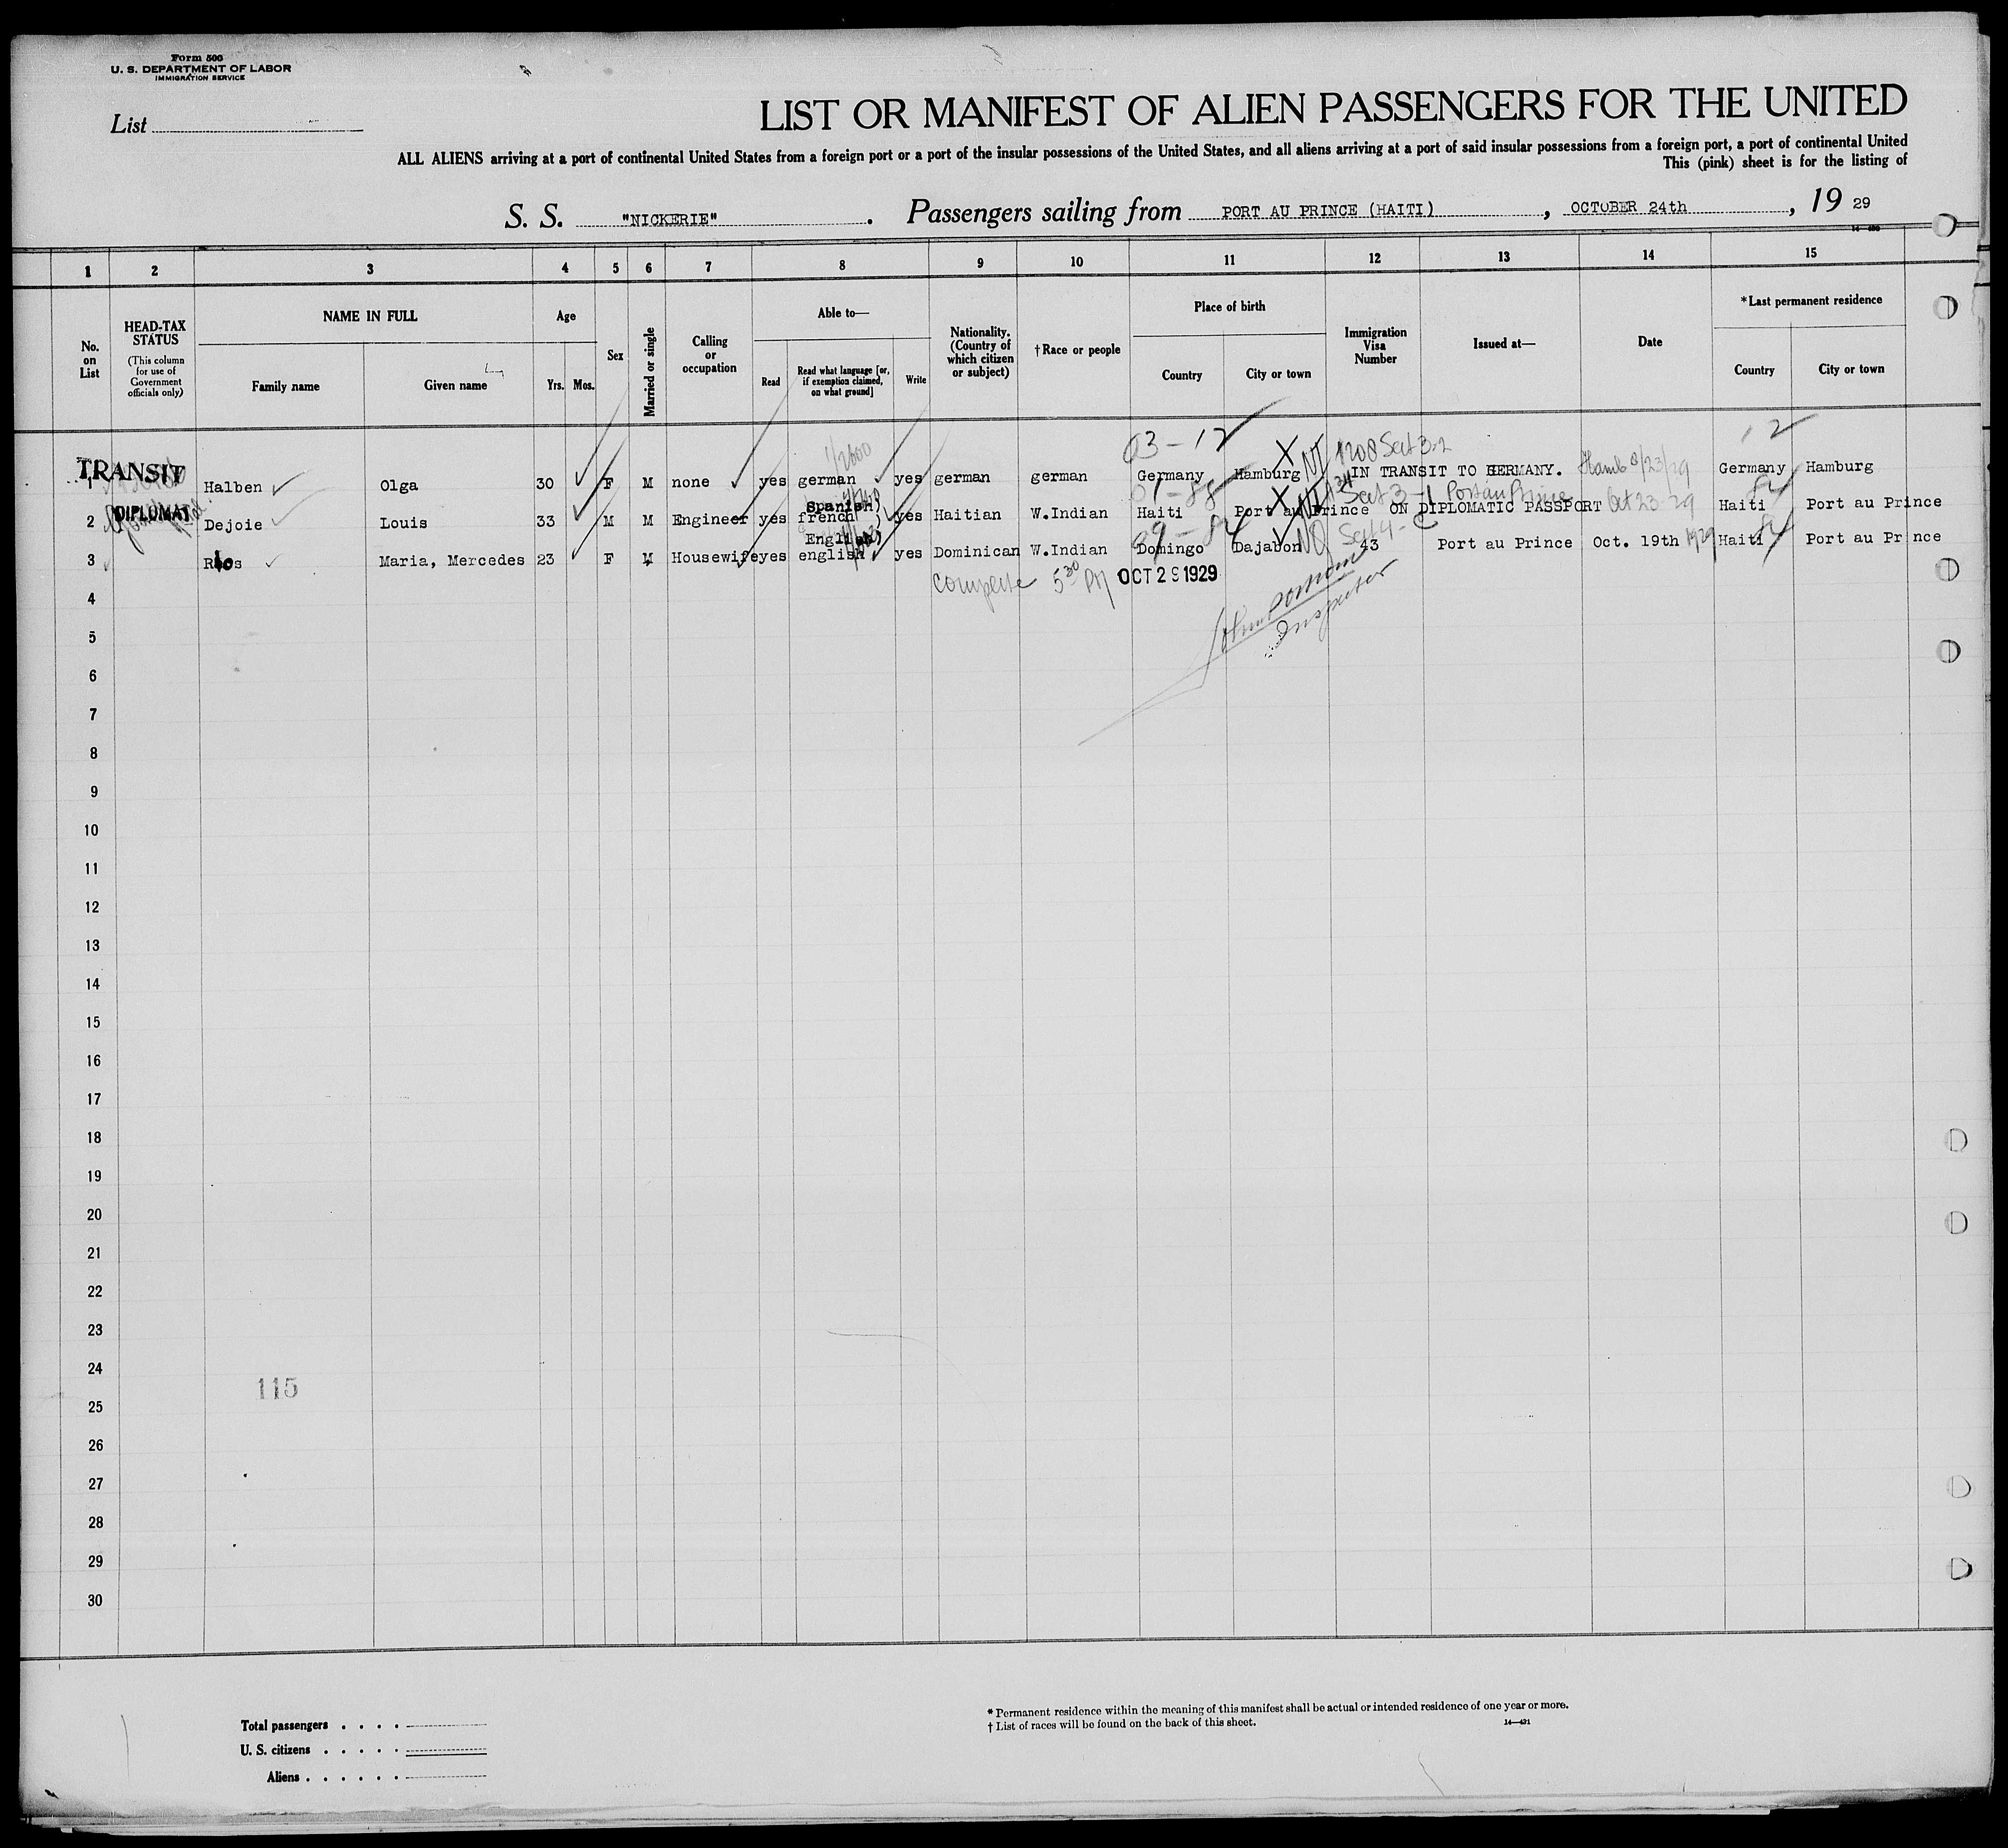 Form 500
U. S. DEPARTMENT OF LABOR
IMMIGRATION SERVICE
List
LIST OR MANIFEST OF ALIEN PASSENGERS FOR THE UNITED
ALL ALIENS arriving at a port of continental United States from a foreign port or a port of the insular possessions of the United States, and all aliens arriving at a port of said insular possessions from a foreign port, a port of continental United
This (pink) sheet is for the listing of
S. S. "NICKERIE". Passengers sailing from PORT AU PRINCE (HAITI), OCTOBER 24th, 19 29
1 2 3 4 5 6 7 8 9 10 11 12 13 14 15
No. on List
HEAD-TAX STATUS
(This column for use of Government officials only)
NAME IN FULL
Family name
Given name
Age
Yrs.
Mos.
Sex
Married or single
Calling or occupation
Able to—
Read
Read what language [or, if exemption claimed, on what ground]
Write
Nationality. (Country of which citizen or subject)
†Race or people
Place of birth
Country
City or town
Immigration Visa Number
Issued at—
Date
*Last permanent residence
Country
City or town
03-12 1208 Sect 3-2 12
TRANSIT
1 Halben Olga 30 F M none yes german yes german german Germany Hamburg IN TRANSIT TO GERMANY. Germany Hamburg
Spanish Sect 3-1 Port au Prince Oct 23-29
DIPLOMAT
2 Dejoie Louis 33 M M Engineer yes french yes Haitian W.Indian Haiti Port au Prince ON DIPLOMATIC PASSPORT Haiti Port au Prince
English
3 Maria, Mercedes 23 F M Housewife yes english yes Dominican W.Indian Domingo Dajabon 43 Port au Prince Oct. 19th 1929 Haiti Port au Prince
5 30 PM OCT 29 1929
Inspector
4
5
6
7
8
9
10
11
12
13
14
15
16
17
18
19
20
21
22
23
24
115
25
26
27
28
29
30
Total passengers
U. S. citizens
Aliens
* Permanent residence within the meaning of this manifest shall be actual or intended residence of one year or more.
† List of races will be found on the back of this sheet. 14—431